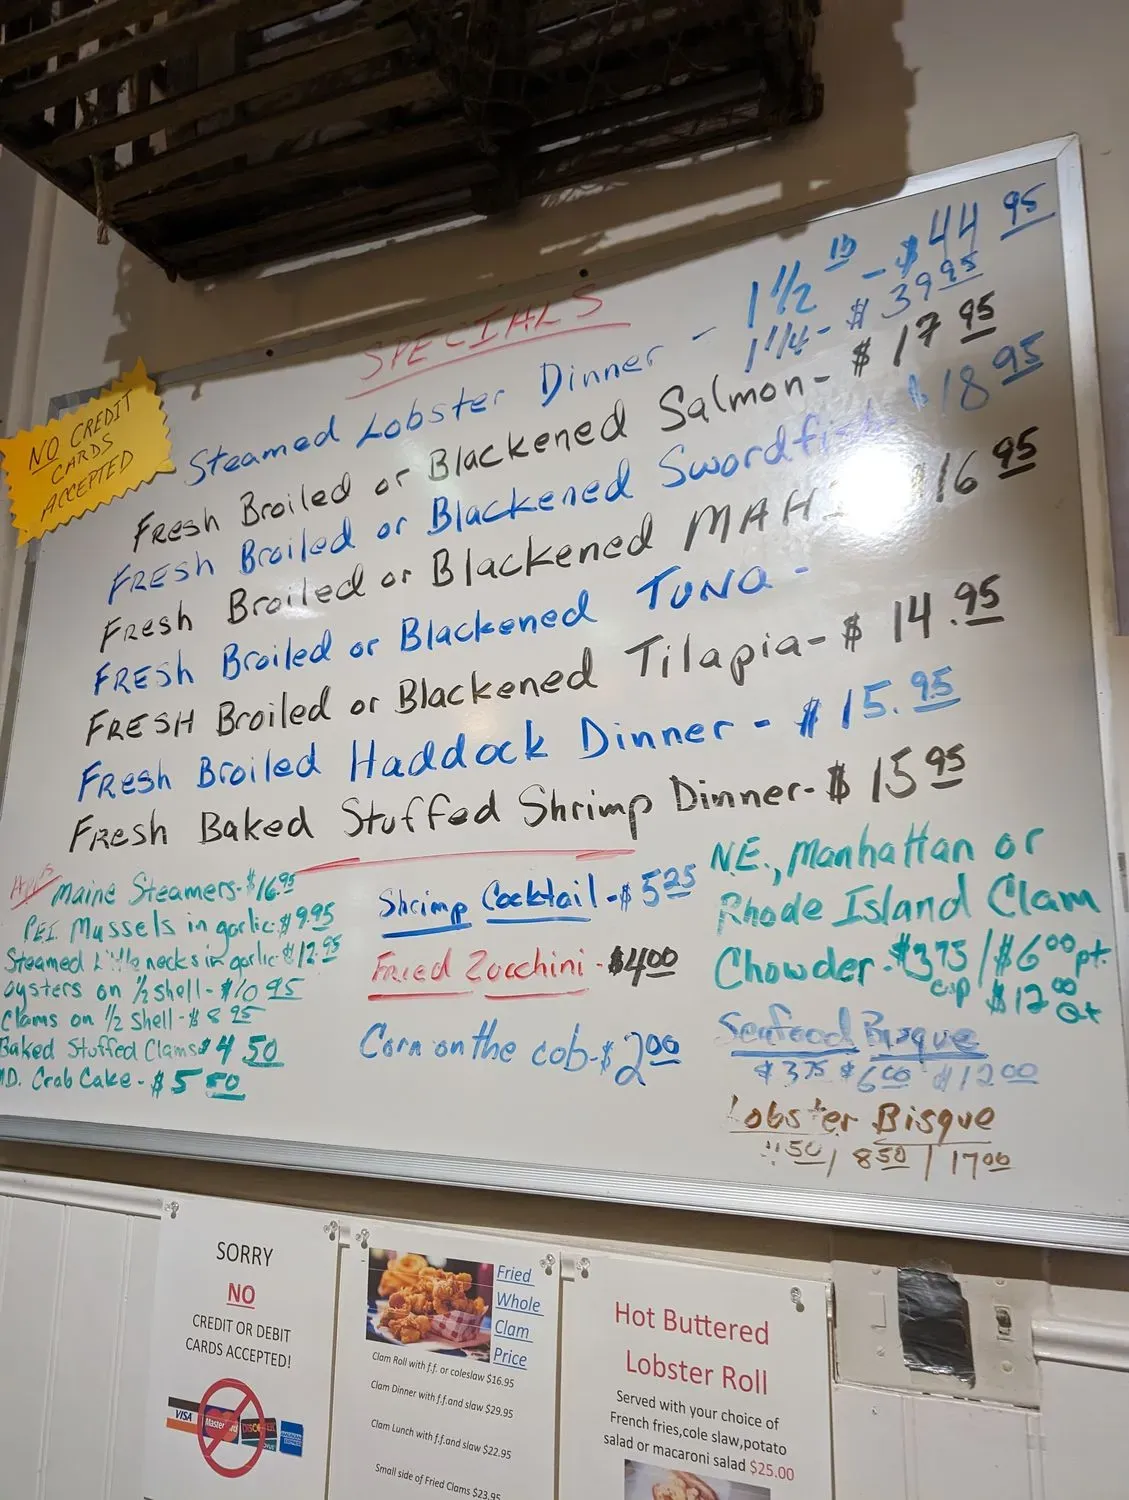 SPECIALS
NO CREDIT
CARDS
ACCEPTED
Steamed Lobster Dinner - 1 1/2 lb - $44 95
1 1/4 - $39 95
Fresh Broiled or Blackened Salmon - $17 95
Fresh Broiled or Blackened Swordfish $18 95
Fresh Broiled or Blackened MAHI $16 95
Fresh Broiled or Blackened TUNA -
FRESH Broiled or Blackened Tilapia - $14.95
Fresh Broiled Haddock Dinner - $15.95
Fresh Baked Stuffed Shrimp Dinner - $15 95
Maine Steamers - $16.95
PEI. Mussels in garlic - $9.95
Steamed Littlenecks in garlic $12.95
oysters on 1/2 shell - $10 95
Clams on 1/2 shell - $8 95
Baked Stuffed Clams $4 50
MD. Crab Cake - $5 50
Shrimp Cocktail - $5 25
Fried Zucchini - $4 00
Corn on the cob - $2 00
N.E., Manhattan or
Rhode Island Clam
Chowder - $3 75 / $6 00 pt.
cup $12 00 Qt
Seafood Bisque
$3 75 $6 00 $12 00
Lobster Bisque
50 / 8 50 / 17 00
SORRY
NO
CREDIT OR DEBIT
CARDS ACCEPTED!
VISA
MasterCard
DISCOVER
AMERICAN EXPRESS
Fried
Whole
Clam
Price
Clam Roll with f.f. or coleslaw $16.95
Clam Dinner with f.f.and slaw $29.95
Clam Lunch with f.f.and slaw $22.95
Small side of Fried Clams $23.95
Hot Buttered
Lobster Roll
Served with your choice of
French fries,cole slaw,potato
salad or macaroni salad $25.00